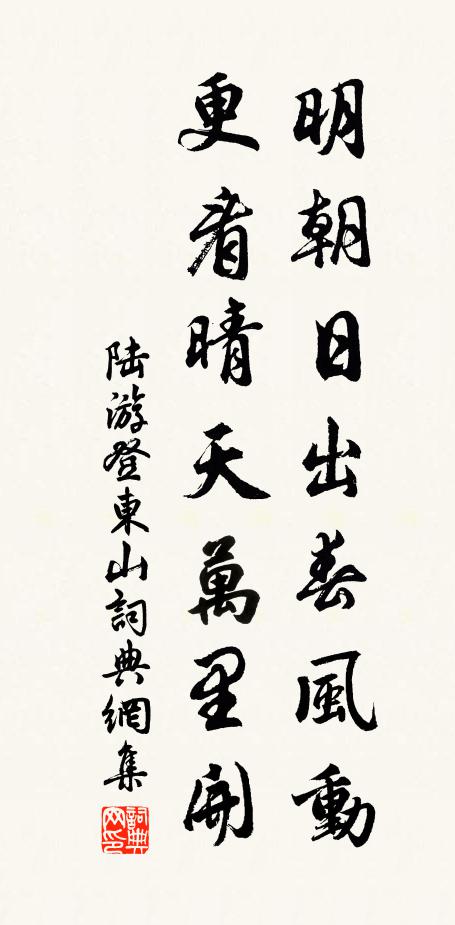 明朝日出春風動
更看晴天萬里開
陸游登東山詞典網集
詞典網印